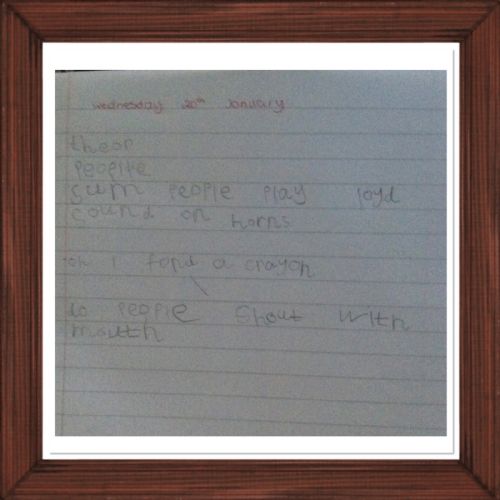 wednesday 20th January
thear
people
sum people play loyd
sound on horns
oh I fond a crayon
do people shout with
mouth